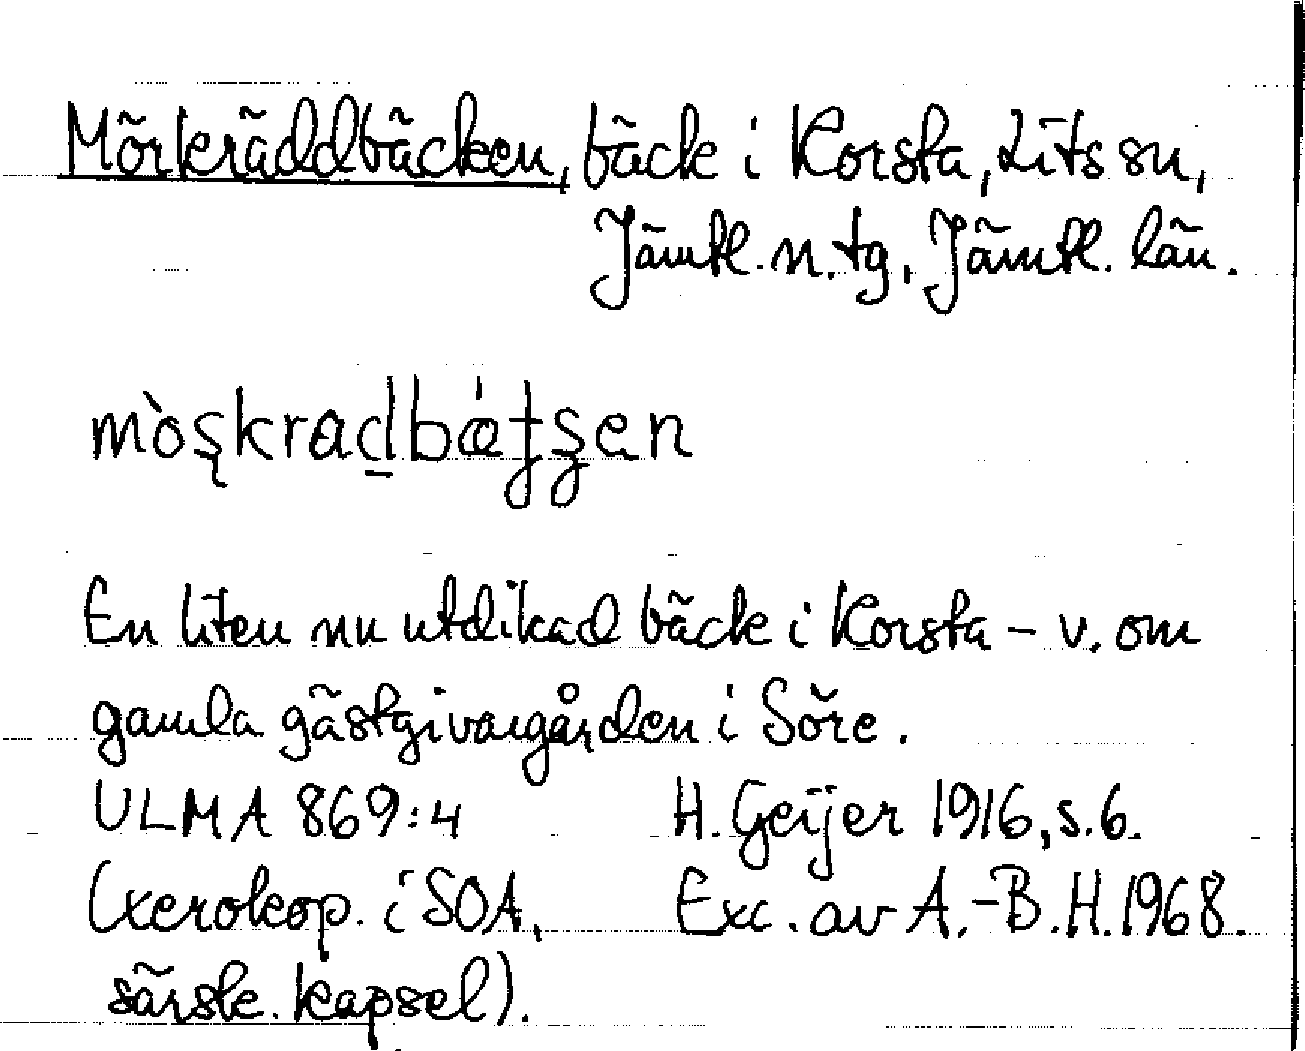 Mörkräddbäcken, bäck i Korsta, Lits sn,
Jämtl. n. tg, Jämtl. län.
mòʂkradbǽʈʂen
En liten nu utdikad bäck i Korsta – v. om
gamla gästgivargården i Söre.
ULMA 869:4 H. Geijer 1916, s. 6.
(xerokop. i SOA, Exc. av A.-B. H. 1968.
särsk. kapsel).